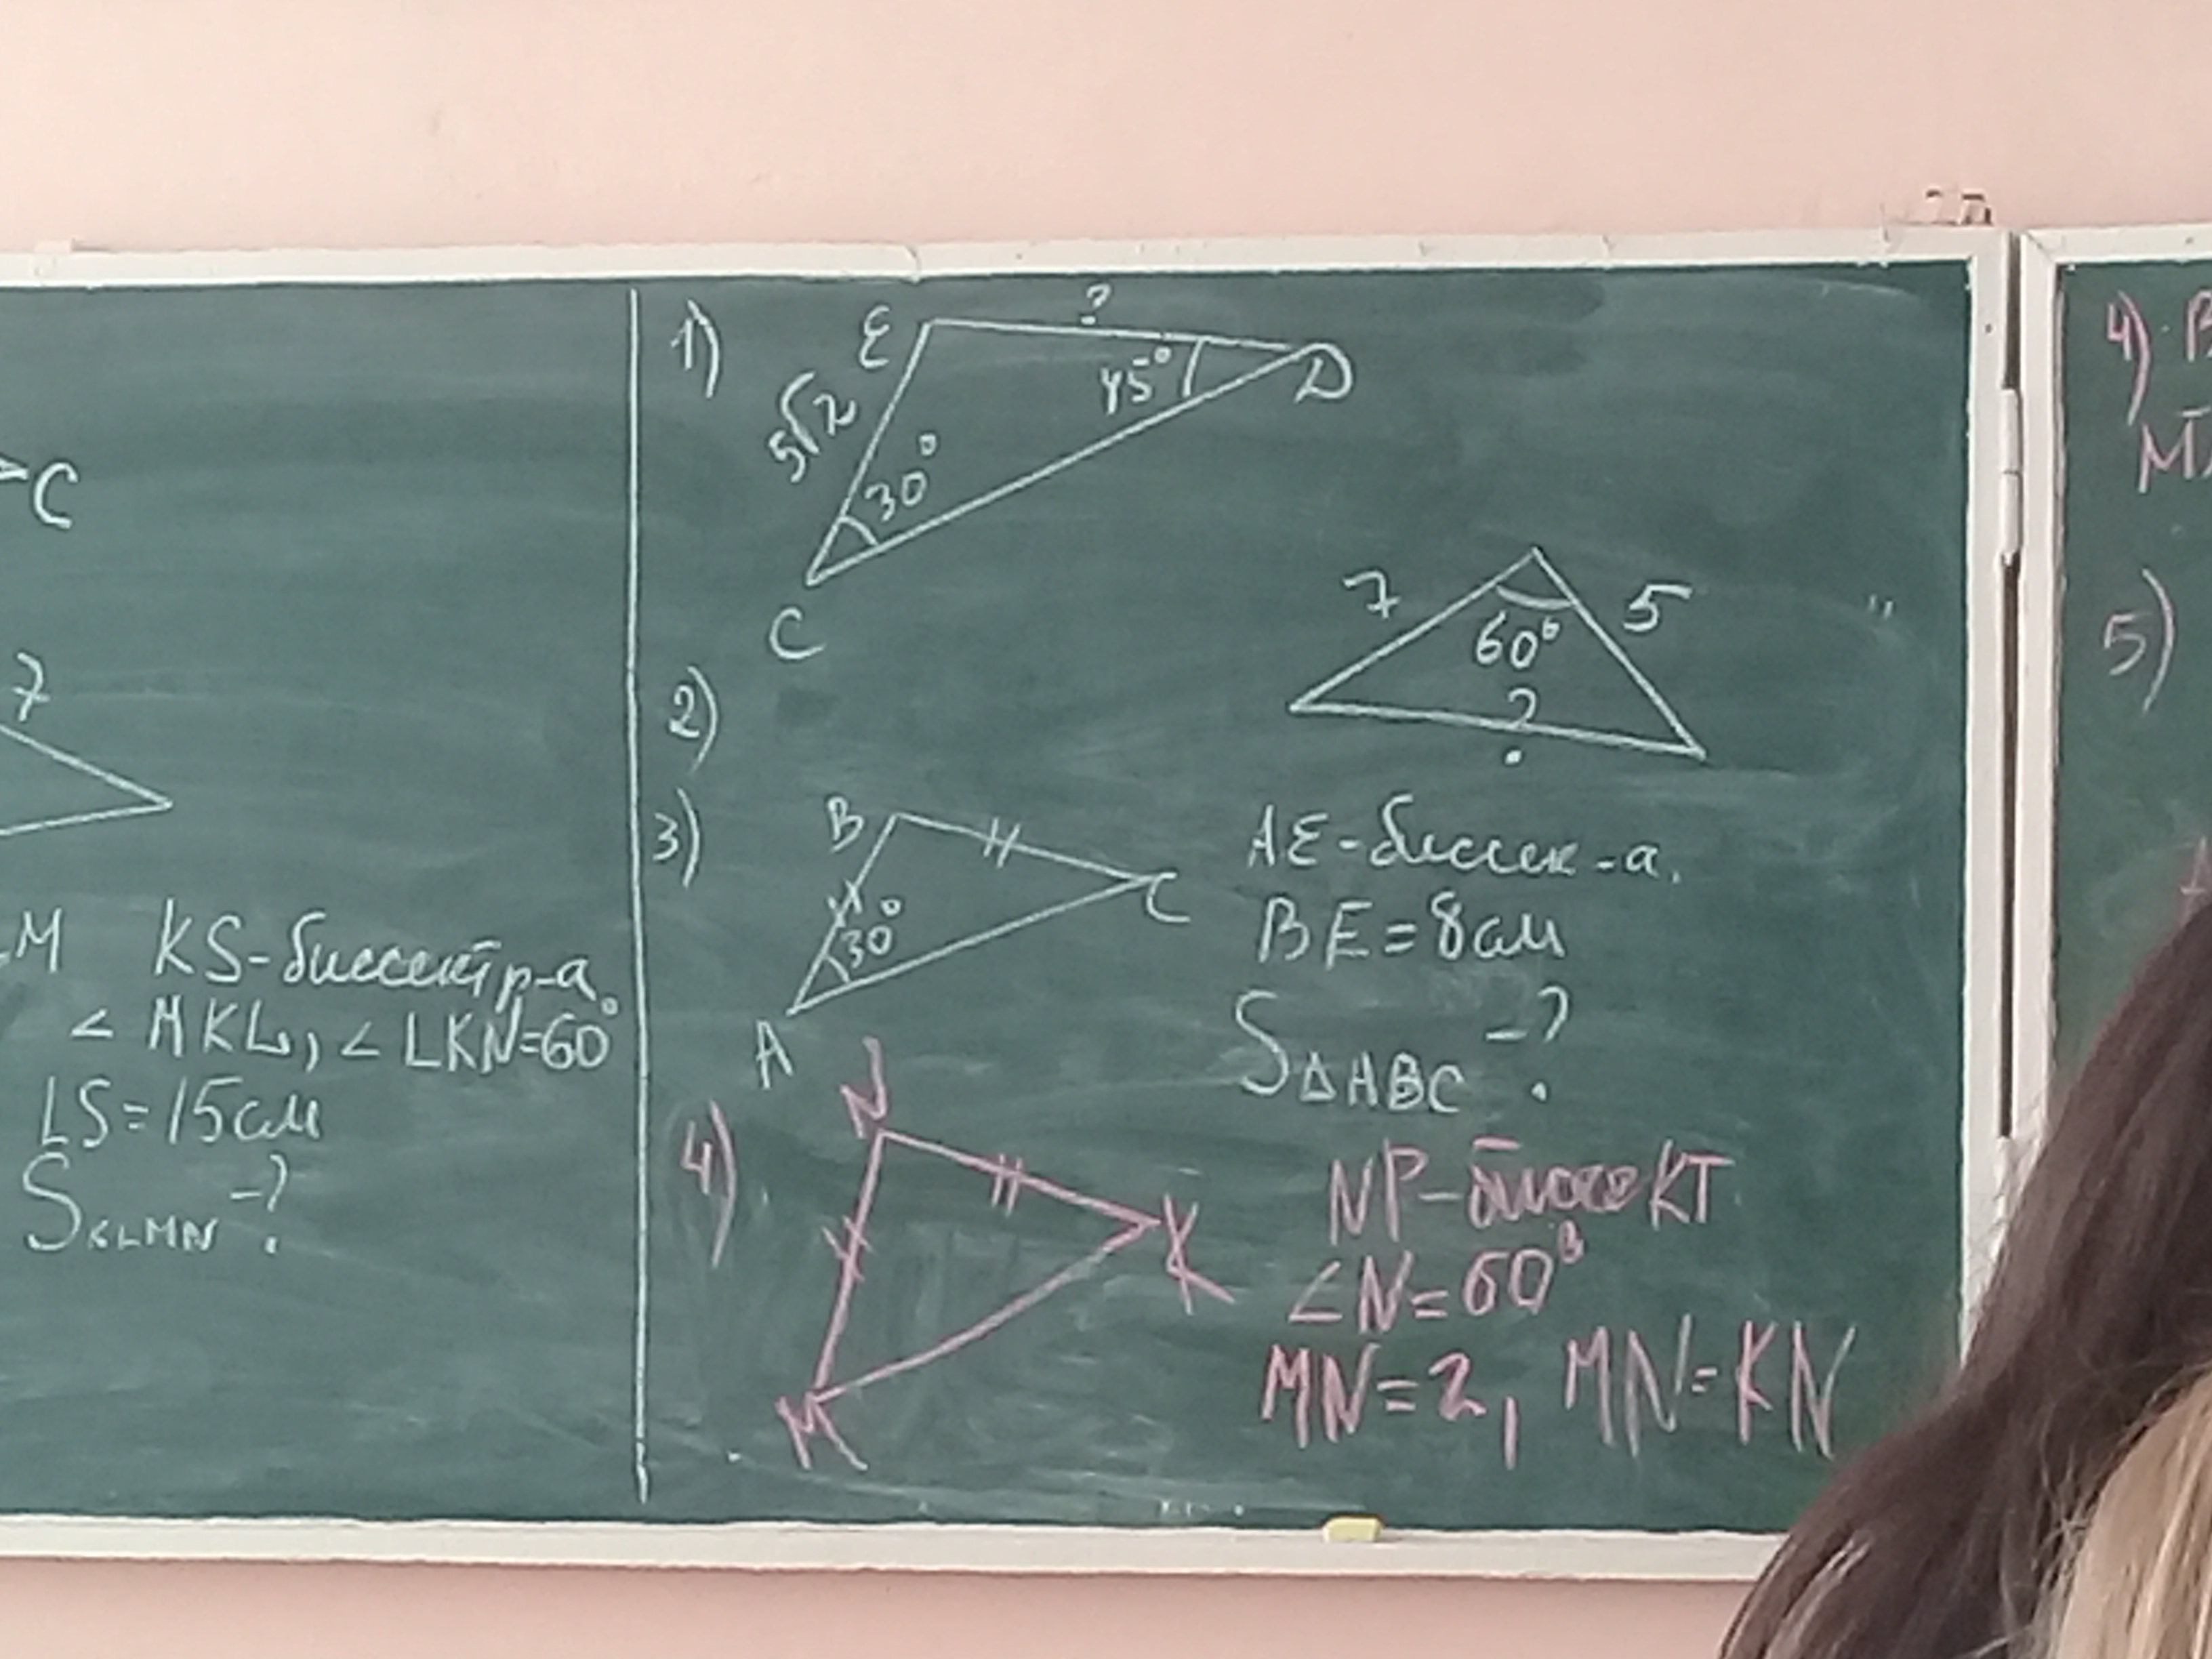 C
7
M KS-биссектр-а
< MKL, < LKN=60°
LS=15см
S KLMN -?
1) E ? D
5√2
30°
45°
C
2)
7 5
60°
?
3) B C
30°
A
AE-биссек-а.
BE=8см
S△ABC -?
4) N K
M
NP-биссект
∠N=60°
MN=2, MN=KN
4)
5)